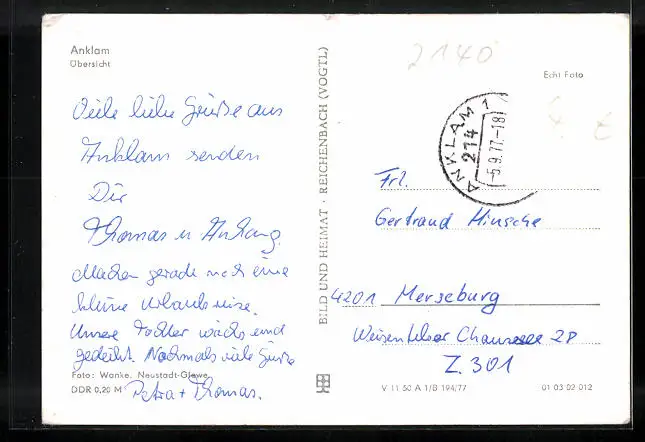 Anklam
Übersicht
Viele liebe Grüße aus
Anklam senden
Dir
Thomas u Anhang.
Machen gerade noch eine
kleine Urlaubsreise.
Unsere Tochter wächst und
gedeiht. Nochmals viele Grüße
Petra + Thomas.
Foto: Wanke, Neustadt-Glewe
DDR 0,20 M
BILD UND HEIMAT · REICHENBACH (VOGTL)
2140
Echt Foto
ANKLAM 1
214
-5.9.77.-18
Frl.
Gertraud Hinsche
4201 Merseburg
Weißenfelser Chaussee 28
Z. 301
V 11 50 A 1/B 194/77
01 03 02 012